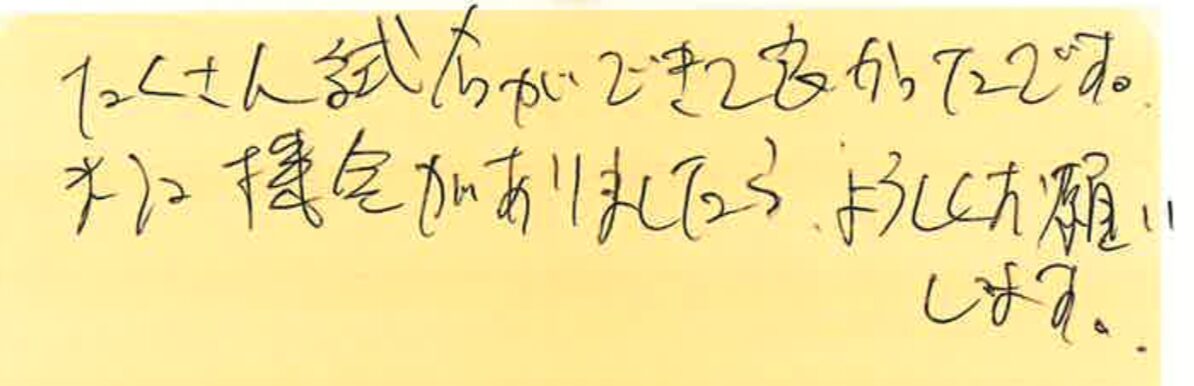 たくさん試着ができて良かったです。
また機会がありましたら、よろしくお願い
します。